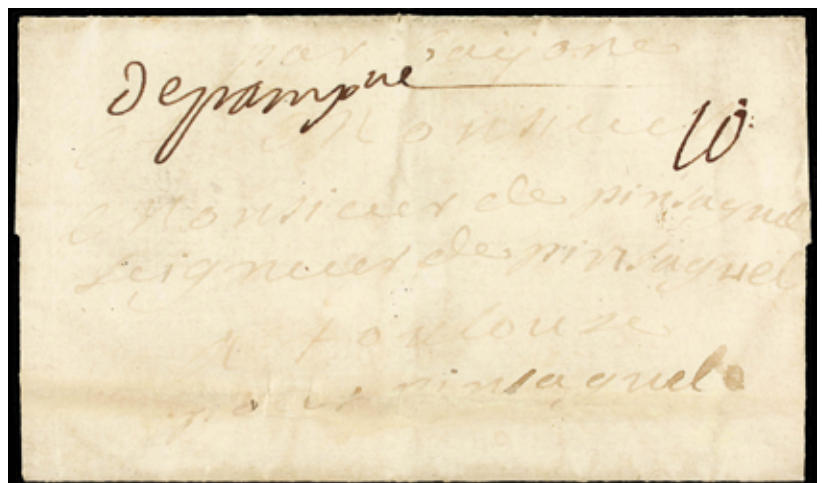 par Bayone
Depampne
10
Monsieur
Monsieur de pinsaguel
seigneur de pinsaguel
A toulouse
pour pinsaguel